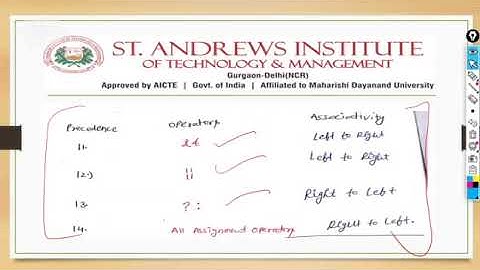 ST. ANDREWS INSTITUTE
OF TECHNOLOGY & MANAGEMENT
Gurgaon-Delhi(NCR)
Approved by AICTE | Govt. of India | Affiliated to Maharishi Dayanand University
Precedence Operators Associativity
11. && Left to Right
12.) || Left to Right
13. ? : Right to Left
14. All Assignment Operators Right to Left.